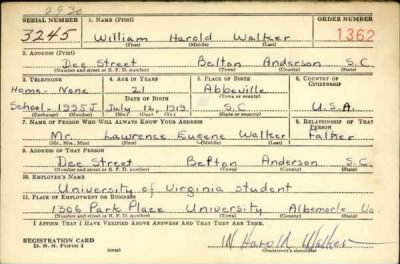 2930
SERIAL NUMBER 1. NAME (Print) ORDER NUMBER
3245 William Harold Walker 1362
(First) (Middle) (Last)
2. ADDRESS (Print)
Dee Street Belton Anderson S.C.
(Number and street or R. F. D. number) (Town) (County) (State)
3. TELEPHONE 4. AGE IN YEARS 5. PLACE OF BIRTH 6. COUNTRY OF CITIZENSHIP
Home - None 21 Abbeville
DATE OF BIRTH
School - 1995J July 12, 1919 S.C U.S.A.
(Exchange) (Number) (Mo.) (Day) (Yr.) (State or country)
7. NAME OF PERSON WHO WILL ALWAYS KNOW YOUR ADDRESS 8. RELATIONSHIP OF THAT PERSON
Mr. Lawrence Eugene Walker Father
(Mr., Mrs., Miss) (First) (Middle) (Last)
9. ADDRESS OF THAT PERSON
Dee Street Belton Anderson S.C.
(Number and street or R. F. D. number) (Town) (County) (State)
10. EMPLOYER'S NAME
University of Virginia student
11. PLACE OF EMPLOYMENT OR BUSINESS
1306 Park Place University Albemarle Va.
(Number and street or R. F. D. number) (Town) (County) (State)
I AFFIRM THAT I HAVE VERIFIED ABOVE ANSWERS AND THAT THEY ARE TRUE.
REGISTRATION CARD
D. S. S. Form 1 (over) W Harold Walker
(Registrant's signature)